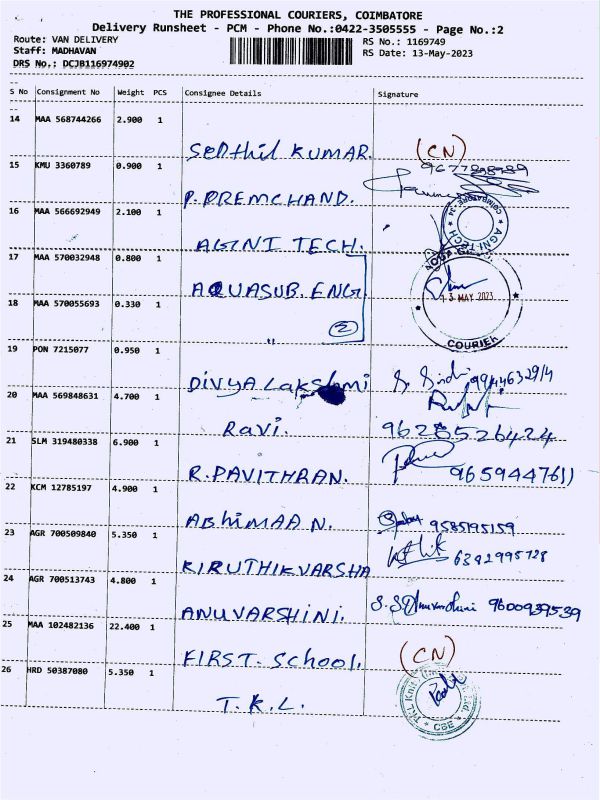 THE PROFESSIONAL COURIERS, COIMBATORE
Delivery Runsheet - PCM - Phone No.:0422-3505555 - Page No.:2
Route: VAN DELIVERY RS No.: 1169749
Staff: MADHAVAN RS Date: 13-May-2023
DRS No.: DCJB116974902
S No Consignment No Weight PCS Consignee Details Signature
14 MAA 568744266 2.900 1
SENTHIL KUMAR. (CN)
15 KMU 3360789 0.900 1
P. PREMCHAND.
16 MAA 566692949 2.100 1
AGNI TECH. AGNI TECH
17 MAA 570032948 0.800 1
AQUASUB. ENG. 13 MAY 2023
18 MAA 570055693 0.330 1
" (2) COURIER
19 PON 7215077 0.950 1
DIVYA LAKSHMI
20 MAA 569848631 4.700 1
Ravi. 9628526424
21 SLM 319480338 6.900 1
R. PAVITHRAN. 9659447611
22 KCM 12785197 4.900 1
ABHIMAAN. 9585195159
23 AGR 700509840 5.350 1
KIRUTHIKVARSHA 6382995728
24 AGR 700513743 4.800 1
ANUVARSHINI. 9600939539
25 MAA 102482136 22.400 1
FIRST. School. (CN)
26 HRD 50387080 5.350 1
T.K.L. CBE